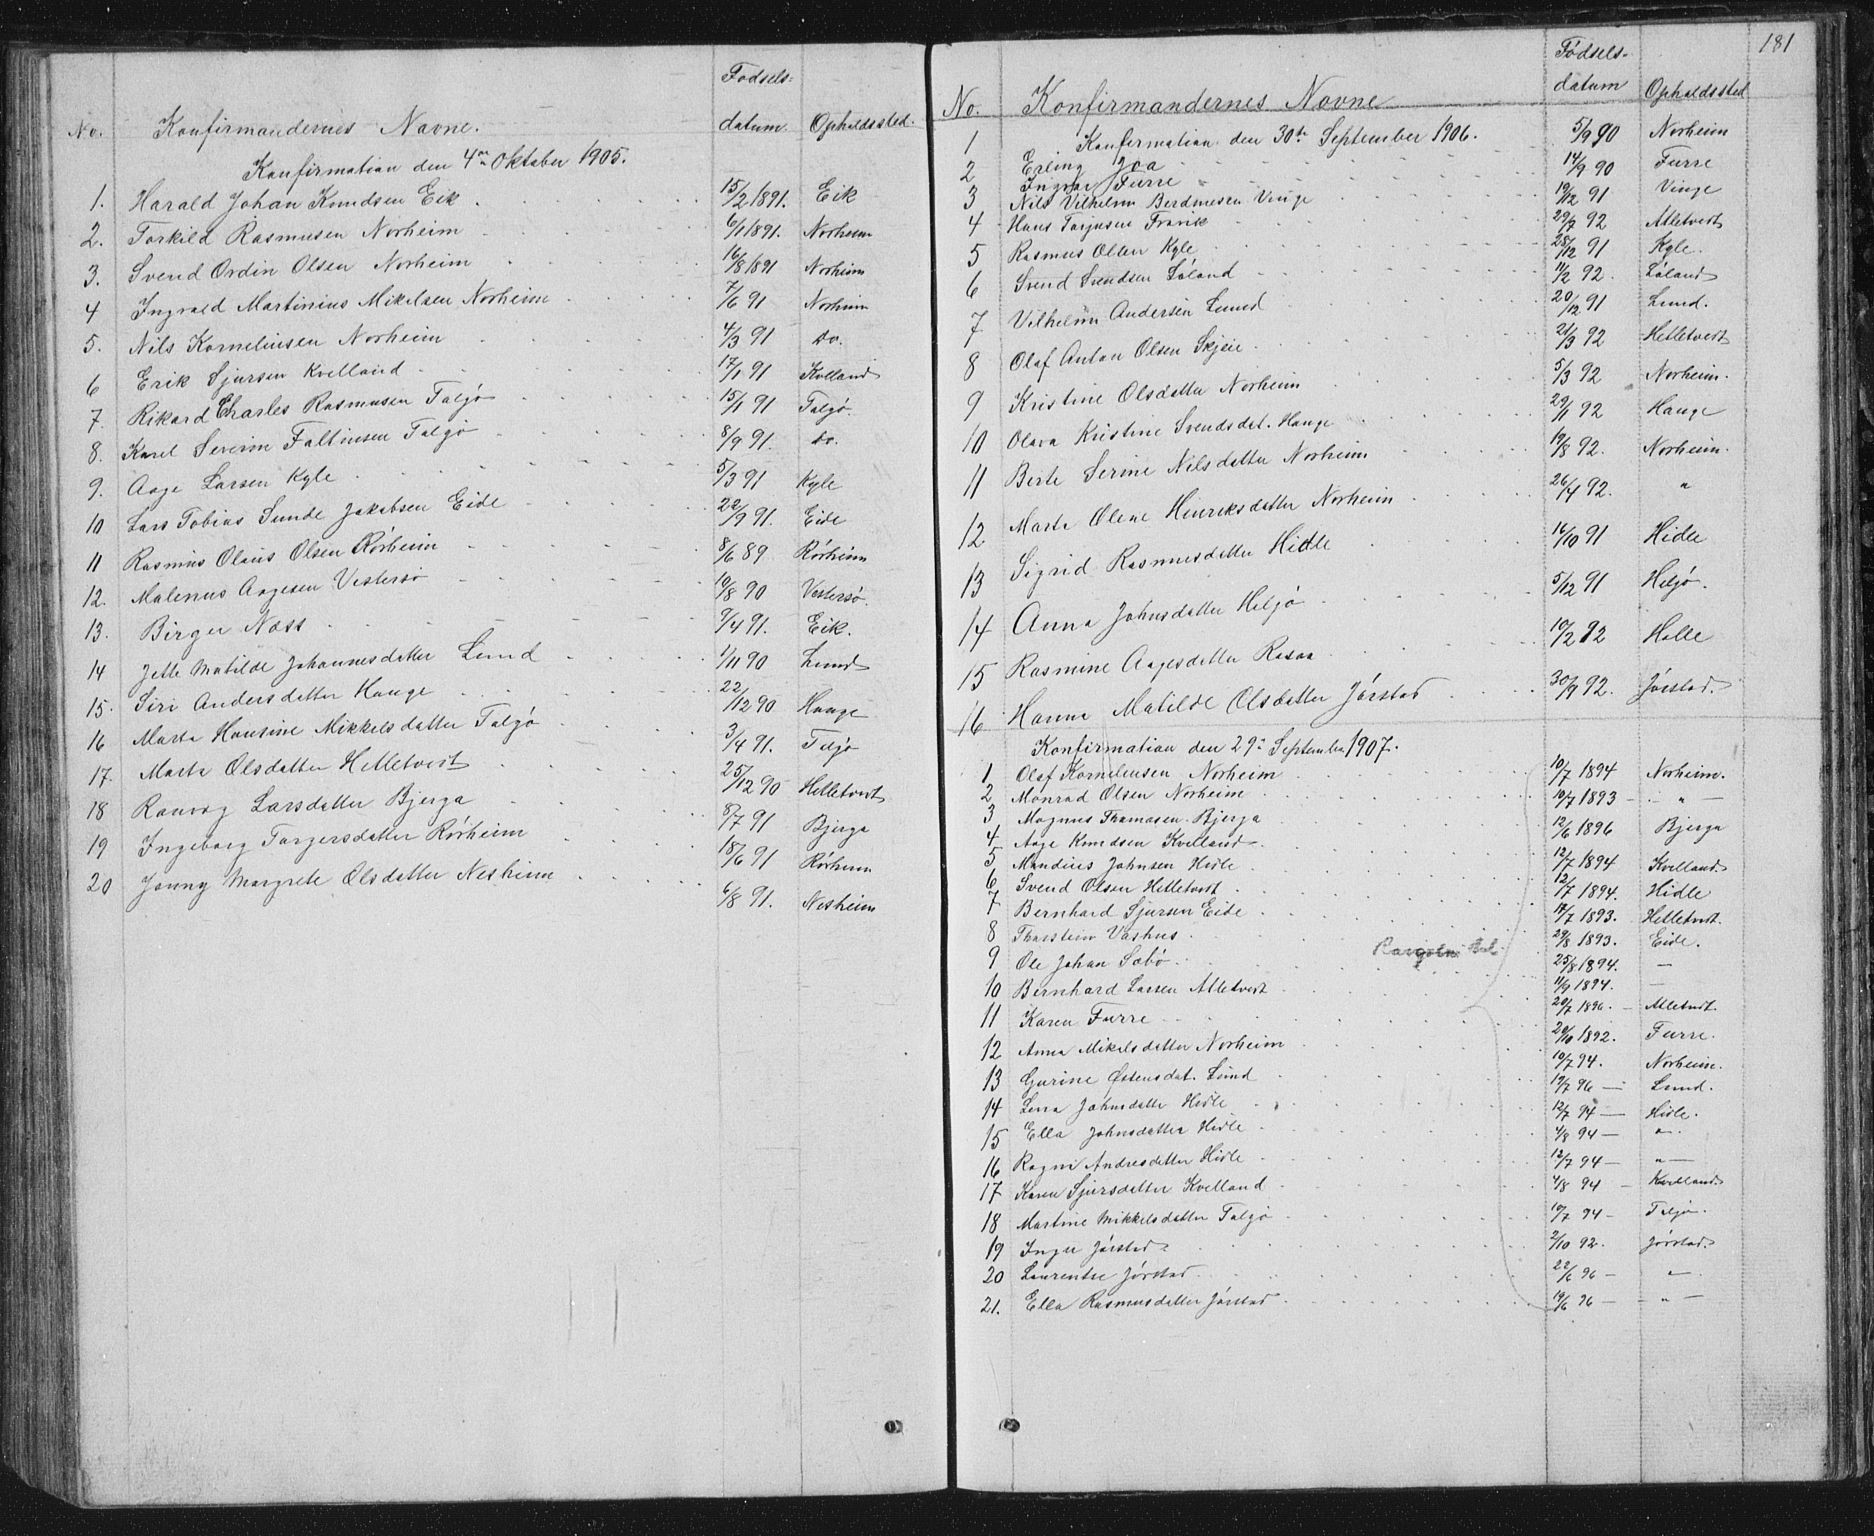 No. Konfirmandernes Navne. Fødsels- datum. Opholdssted.
Konfirmation den 4de Oktober 1905.
1. Harald Johan Knudsen Eik 15/2 1891. Eik
2. Torkild Rasmusen Norheim 6/1 1891. Norheim
3. Svend Ordin Olsen Norheim 16/8 1891 Norheim
4 Ingvald Martinius Mikelsen Norheim 7/6 91 Norheim
5. Nils Korneliusen Norheim 4/3 91 do.
6 Erik Sjursen Kvelland 17/1 91 Kvelland
7. Rikard Charles Rasmusen Talgø 15/1 91 Talgø.
8. Karel Severin Faltinsen Talgø 8/9 91. do.
9. Aage Larsen Kyle 5/3 91 Kyle
10 Lars Tobias Sunde Jakobsen Eide 22/9 91. Eide
11 Rasmus Olaus Olsen Rørheim 8/6 89 Rørheim
12. Malenus Aagesen Vestersø 10/8 90 Vestersø.
13. Birger Næss 9/4 91. Eik.
14 Jette Matilde Johannesdatter Lund 1/11 90 Lund
15. Siri Andersdatter Hauge 22/12 90 Hauge
16 Marta Hansine Mikkelsdatter Talgø 3/4 91. Talgø
17. Marta Olsdatter Helletvest 25/12 90 Helletvest
18 Ranvog Larsdatter Bjerga 8/7 91 Bjerga
19 Ingeborg Torgersdatter Rørheim 18/6 91 Rørheim
20 Jonny Margrete Olsdatter Nesheim 6/8 91. Nesheim
181
No. Konfirmandernes Navne Fødsels- datum Opholdssted
Konfirmation den 30te September 1906.
1 Erling Joa 5/9 90 Norheim
2 Ingvar Furre 14/9 90 Furre
3 Nils Vilhelm Berdinesen Vinge 19/12 91 Vinge
4 Hans Torjusen 29/7 92 Atletvest
5 Rasmus Olsen Kyle 28/12 91 Kyle.
6 Svend Svendsen Løland 11/2 92. Løland
7 Vilhelm Andersen Lund 20/12 91 Lund.
8 Olaf Anton Olsen Skjeie 21/3 92 Helletvest
9 Kristine Olsdatter Norheim 5/3 92 Norheim.
10 Olava Kristine Svendsdat. Hauge 29/1 92 Hauge
11 Berte Serine Nilsdatter Norheim 19/8 92. Norheim.
12 Marta Olene Henriksdatter Norheim 26/4 92. "
13 Sigrid Rasmusdatter Hidle 14/10 91 Hidle
14 Anna Johnsdatter Heljø 5/12 91 Heljø.
15 Rasmine Aagesdatter Rosaa 10/2 92 Halle
16 Hanna Matilde Olsdatter Jørstad 30/9 92. Jørstad.
Konfirmation den 29de September 1907.
1, Olaf Korneliusen Norheim 10/7 1894 Norheim.
2 Monrad Olsen Norheim 10/7 1893 - "
3 Magnus Thomasen Bjerga 12/6 1896 Bjerga
4 Aage Knudsen Kvelland 12/7 1894 Kvelland
5 Mandius Johnsen Hidle 12/7 1894. Hidle
6 Svend Olsen Helletvest 17/7 1893. Helletvest.
7 Bernhard Sjursen Eide 29/8 1893. Eide.
8 Thorstein Vashus 25/8 1894. —
9 Ole Johan Sæbø 11/9 1894. —
10 Bernhard Larsen Atletvest 20/7 1896. - Atletvest.
11 Karen Furre 29/10 1892. Furre.
12 Anna Mikelsdatter Norheim 10/7 94. Norheim.
13 Gurine Østensdat. Lund 19/7 96 — Lund.
14 Lina Johnsdatter Hidle 12/7 94 — Hidle.
15 Ella Johnsdatter Hidle 4/8 94 — "
16 Ragni Andresdatter Hidle 12/7 94 — "
17 Karen Sjursdatter Kvelland 4/8 94 - Kvelland
18 Martine Mikkelsdatter Talgø 10/7 94 - Talgø.
19 Inger Jørstad 2/10 92. Jørstad.
20 Laurentse Jørstad 22/6 96 — "
21. Ella Rasmusdatter Jørstad 19/6 96 — "